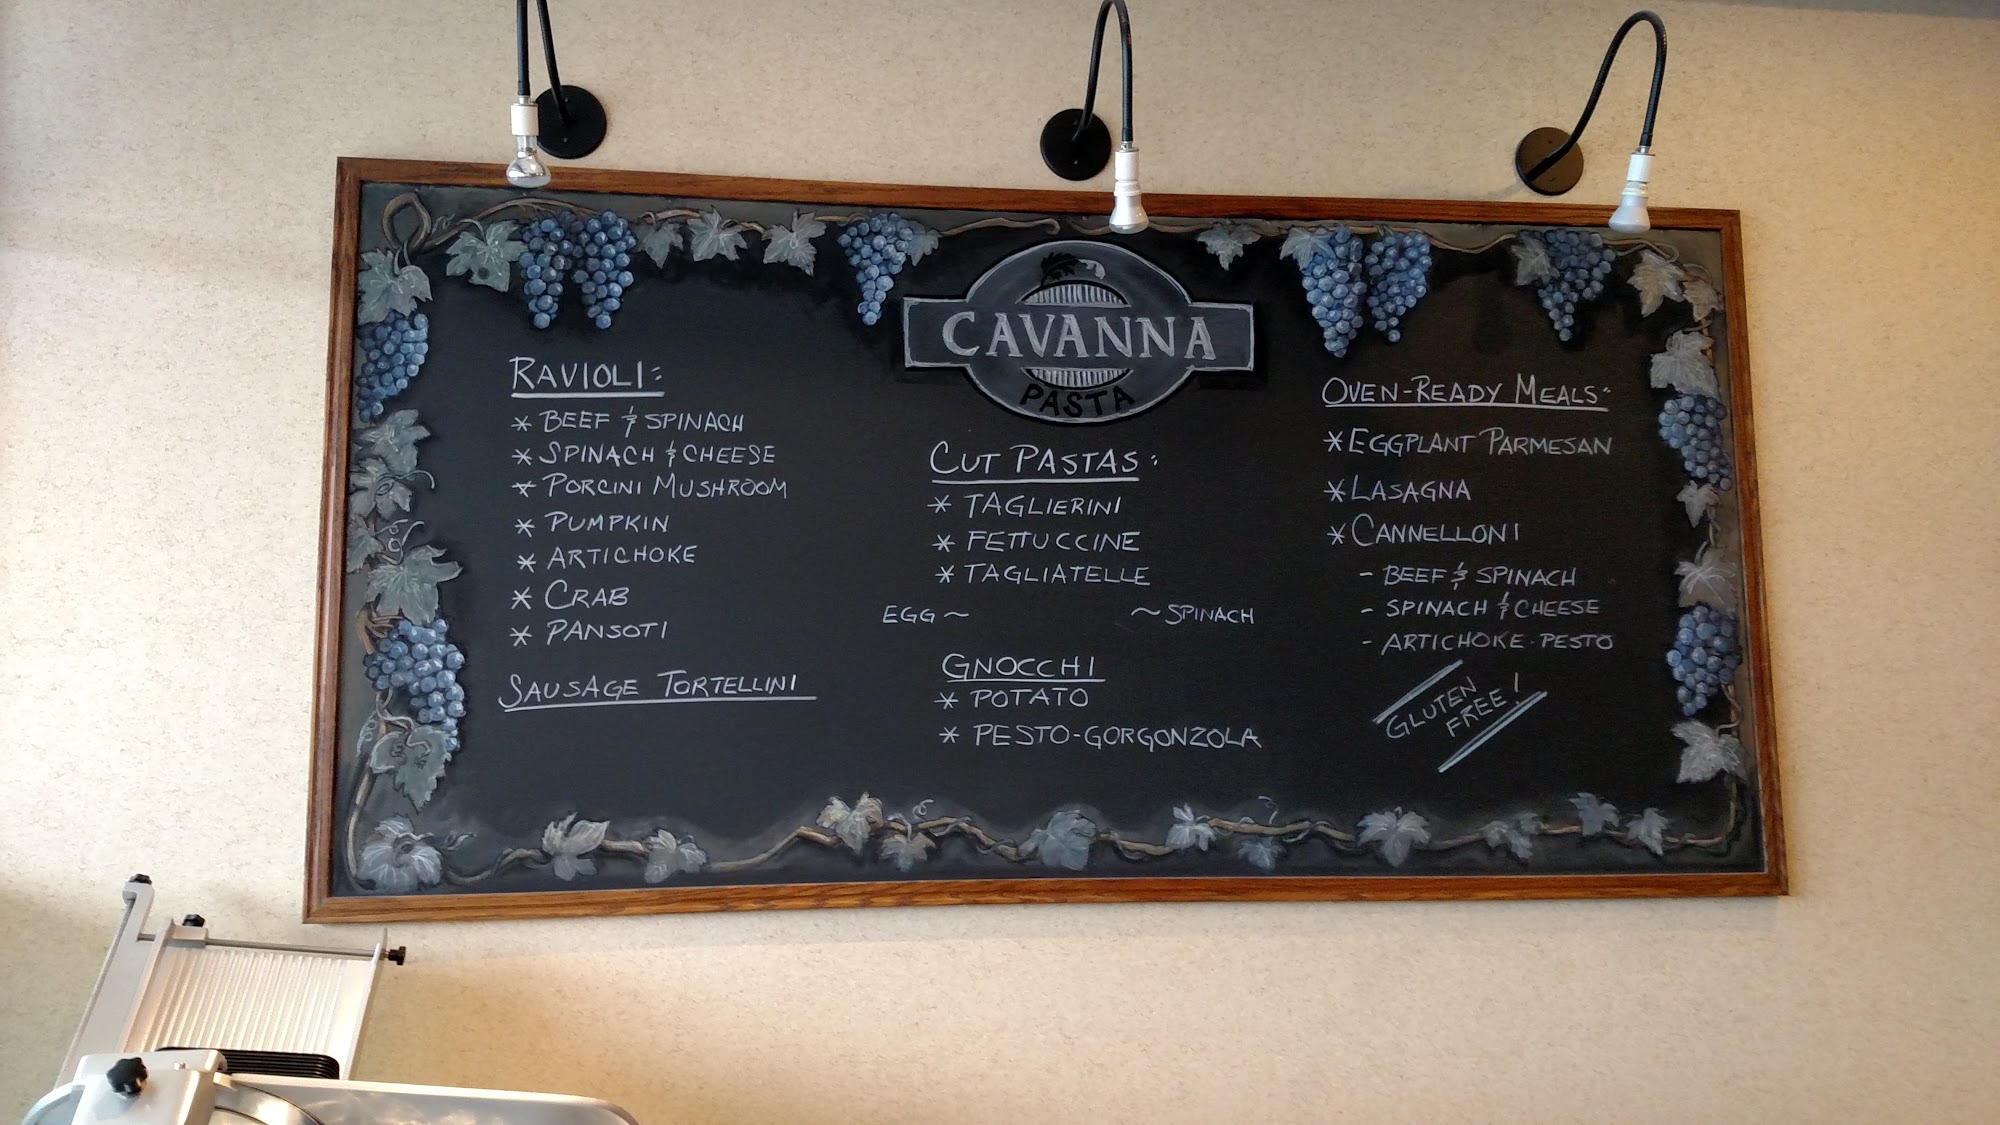 CAVANNA
PASTA
RAVIOLI:
* BEEF & SPINACH
* SPINACH & CHEESE
* PORCINI MUSHROOM
* PUMPKIN
* ARTICHOKE
* CRAB
* PANSOTI
SAUSAGE TORTELLINI
CUT PASTAS:
* TAGLIERINI
* FETTUCCINE
* TAGLIATELLE
EGG ~ ~ SPINACH
GNOCCHI
* POTATO
* PESTO-GORGONZOLA
OVEN-READY MEALS:
* EGGPLANT PARMESAN
* LASAGNA
* CANNELLONI
- BEEF & SPINACH
- SPINACH & CHEESE
- ARTICHOKE-PESTO
GLUTEN
FREE!